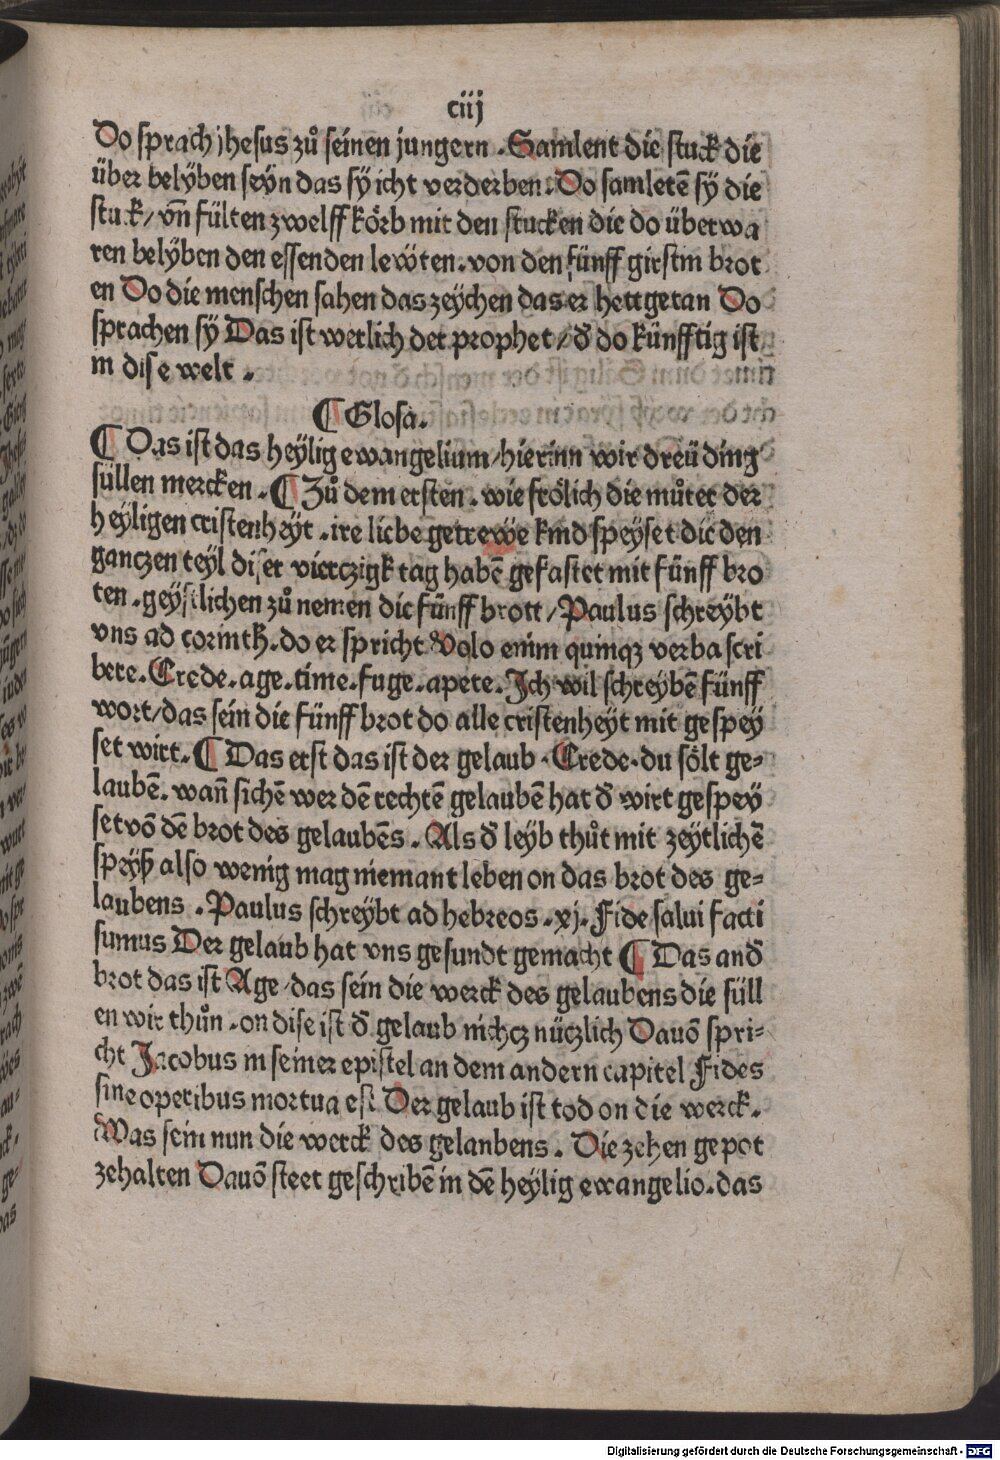 ciij
Do sprach jhesus zů seinen jungern. Samlent die stuck die
über belÿben seÿn das sÿ icht verderben. Do samletē sÿ die
stuck/ vn̄ fülten zwelff körb mit den stucken die do überwa
ren belÿben den essenden lewten. von den fünff girstin brot
en Do die menschen sahen das zeÿchen das er hett getan Do
sprachen sÿ Das ist werlich der prophet/ d̄ do künfftig ist
in dise welt.
¶ Glosa.
¶ Das ist das heÿlig ewangelium/ hierinn wir dreü ding
süllen mercken. ¶ Zů dem ersten. wie frölich die můter der
heÿligen cristenheÿt. ire liebe getrewe kind speÿset die den
ganczen teÿl diser vierczigk tag habē gefastet mit fünff bro
ten. geÿstlichen zů nemen die fünff brott/ Paulus schreÿbt
vns ad corinth. do er spricht Volo enim quinqꝫ verba scri
bere. Crede. age. time. fuge. apete. Ich wil schreÿbē fünff
wort/ das sein die fünff brot do alle cristenheÿt mit gespeÿ
set wirt. ¶ Das erst das ist der gelaub. Crede. du sölt ge⸗
laubē. wan̄ sichē wer dē rechtē gelaubē hat d̄ wirt gespeÿ
set vō dē brot des gelaubēs. Als d̄ leÿb thůt mit zeÿtlichē
speÿß also wenig mag niemant leben on das brot des ge⸗
laubens. Paulus schreÿbt ad hebreos. xj. Fide salui facti
sumus Der gelaub hat vns gesundt gemacht ¶ Das and̄
brot das ist Age/ das sein die werck des gelaubens die süll
en wir thůn. on dise ist d̄ gelaub nichcz nüczlich Dauō spri⸗
cht Jacobus in seiner epistel an dem andern capitel Fides
sine operibus mortua est Der gelaub ist tod on die werck.
Was sein nun die werck des gelanbens. Die zehen gepot
zehalten Dauō steet geschribē in dē heÿlig ewangelio. das
Digitalisierung gefördert durch die Deutsche Forschungsgemeinschaft - DFG